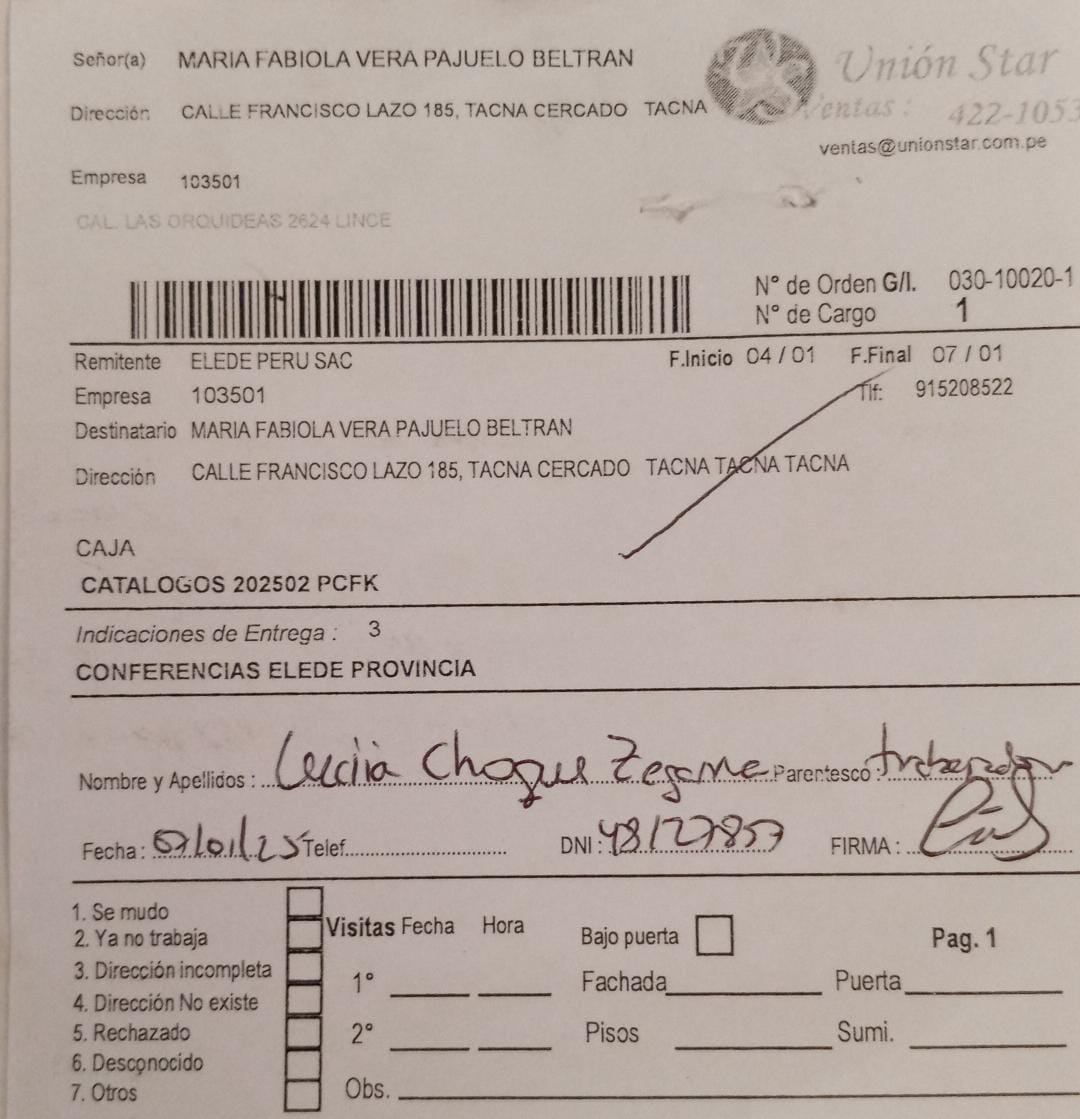 Señor(a) MARIA FABIOLA VERA PAJUELO BELTRAN
Unión Star
Dirección CALLE FRANCISCO LAZO 185, TACNA CERCADO TACNA
Ventas : 422-1053
ventas@unionstar.com.pe
Empresa 103501
CAL. LAS ORQUIDEAS 2624 LINCE
N° de Orden G/I. 030-10020-1
N° de Cargo 1
Remitente ELEDE PERU SAC F.Inicio 04 / 01 F.Final 07 / 01
Empresa 103501 Tlf: 915208522
Destinatario MARIA FABIOLA VERA PAJUELO BELTRAN
Dirección CALLE FRANCISCO LAZO 185, TACNA CERCADO TACNA TACNA TACNA
CAJA
CATALOGOS 202502 PCFK
Indicaciones de Entrega : 3
CONFERENCIAS ELEDE PROVINCIA
Nombre y Apellidos : Choque Parentesco : trabajador
Fecha : 07/01/25 Telef. DNI : 48127857 FIRMA :
1. Se mudo
2. Ya no trabaja
3. Dirección incompleta
4. Dirección No existe
5. Rechazado
6. Desconocido
7. Otros
Visitas Fecha Hora
1°
2°
Obs.
Bajo puerta
Fachada Puerta
Pisos Sumi.
Pag. 1